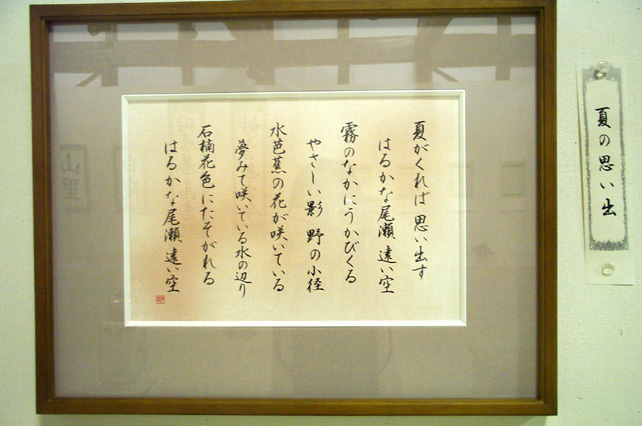 夏がくれば 思い出す
はるかな尾瀬 遠い空
霧のなかにうかびくる
やさしい影 野の小径
水芭蕉の花が咲いている
夢みて咲いている水の辺り
石楠花色にたそがれる
はるかな尾瀬 遠い空
夏の思い出